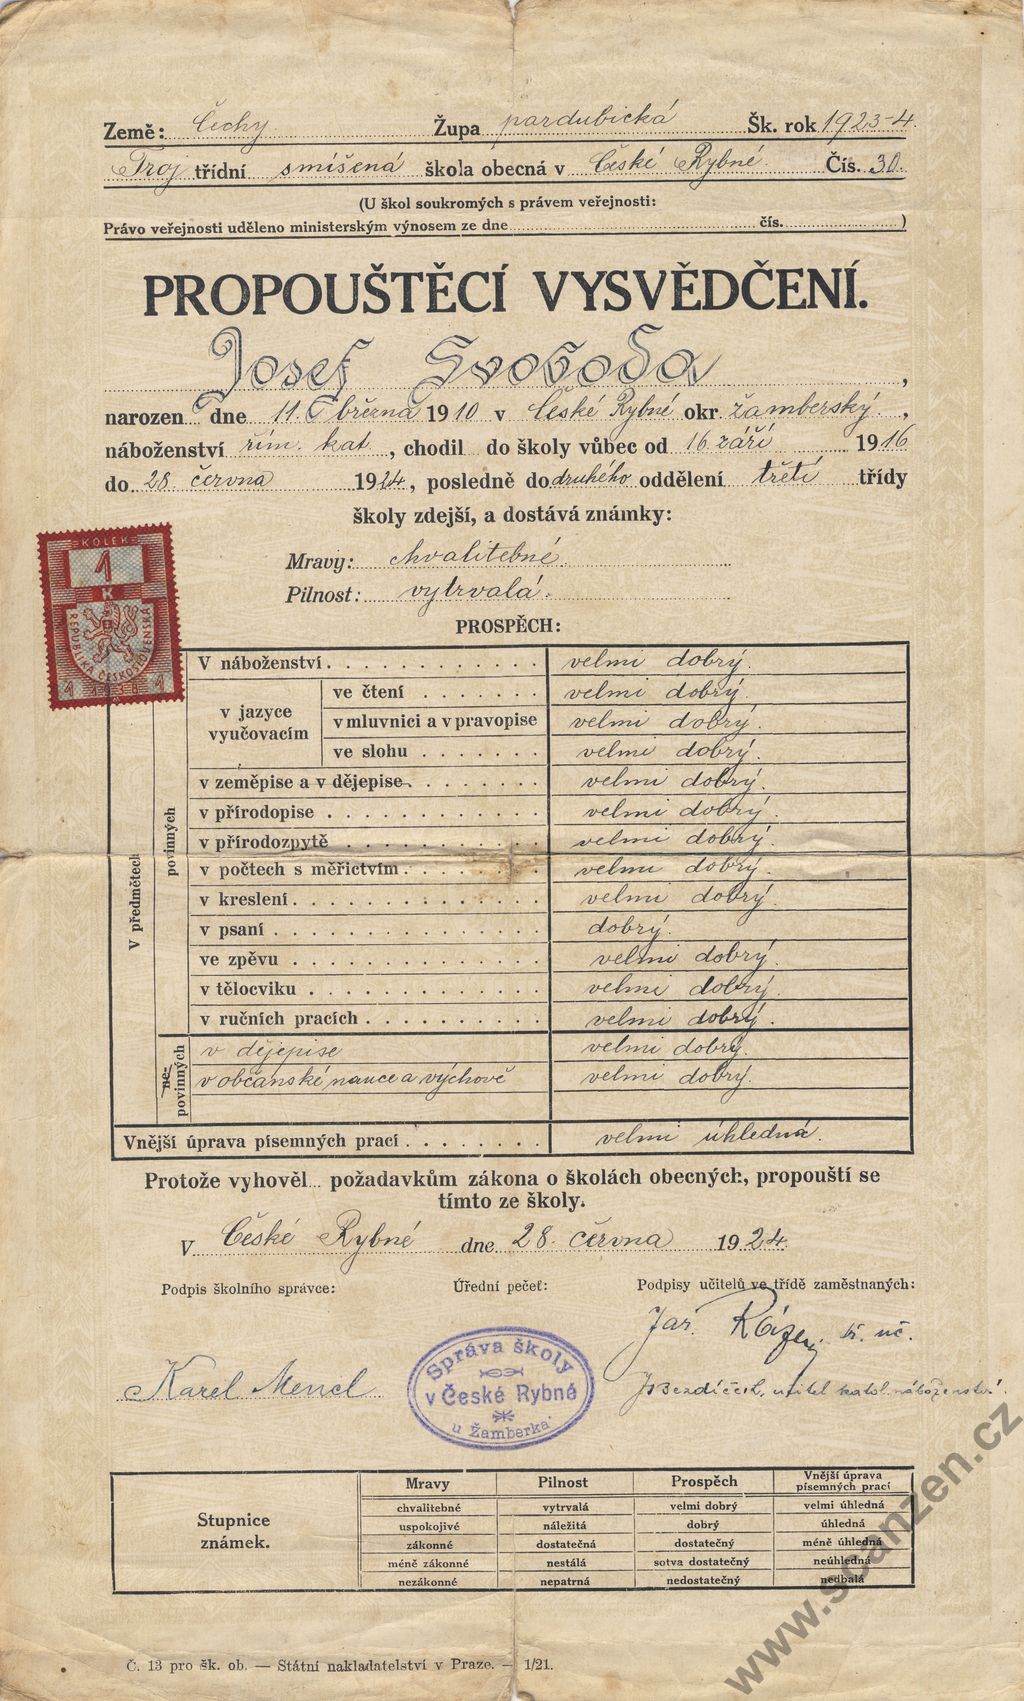 Země: Čechy Župa pardubická Šk. rok 1923-4.
Troj třídní smíšená škola obecná v České Rybné. Čís. 30.
(U škol soukromých s právem veřejnosti:
Právo veřejnosti uděleno ministerským výnosem ze dne čís. )
PROPOUŠTĚCÍ VYSVĚDČENÍ.
Josef Svoboda,
narozen dne 11. března 1910 v České Rybné okr. žamberský,
náboženství řím. kat., chodil do školy vůbec od 16 září 1916
do 28. června 1924, posledně do druhého oddělení třetí třídy
školy zdejší, a dostává známky:
Mravy: chvalitebné.
Pilnost: vytrvalá.
KOLEK
1
K
REPUBLIKA ČESKOSLOVENSKÁ
1 1938 1
PROSPĚCH:
V předmětech
povinných
V náboženství velmi dobrý.
v jazyce vyučovacím
ve čtení velmi dobrý.
v mluvnici a v pravopise velmi dobrý.
ve slohu velmi dobrý.
v zeměpise a v dějepise velmi dobrý.
v přírodopise velmi dobrý.
v přírodozpytě velmi dobrý.
v počtech s měřictvím velmi dobrý.
v kreslení velmi dobrý.
v psaní dobrý.
ve zpěvu velmi dobrý.
v tělocviku velmi dobrý.
v ručních pracích velmi dobrý.
nepovinných
v dějepise velmi dobrý.
v občanské nauce a výchově velmi dobrý.
Vnější úprava písemných prací velmi úhledná.
Protože vyhověl požadavkům zákona o školách obecných, propouští se
tímto ze školy.
V České Rybné dne 28. června 1924.
Podpis školního správce: Úřední pečeť: Podpisy učitelů ve třídě zaměstnaných:
Jar.
Karel Mencl
Správa školy
v České Rybné
u Žamberka
J. Bezdíček, učitel katol. náboženství.
Stupnice známek.
Mravy Pilnost Prospěch Vnější úprava písemných prací
chvalitebné vytrvalá velmi dobrý velmi úhledná
uspokojivé náležitá dobrý úhledná
zákonné dostatečná dostatečný méně úhledná
méně zákonné nestálá sotva dostatečný neúhledná
nezákonné nepatrná nedostatečný nedbalá
Č. 13 pro šk. ob. — Státní nakladatelství v Praze. — 1/21.
www.scanzen.cz